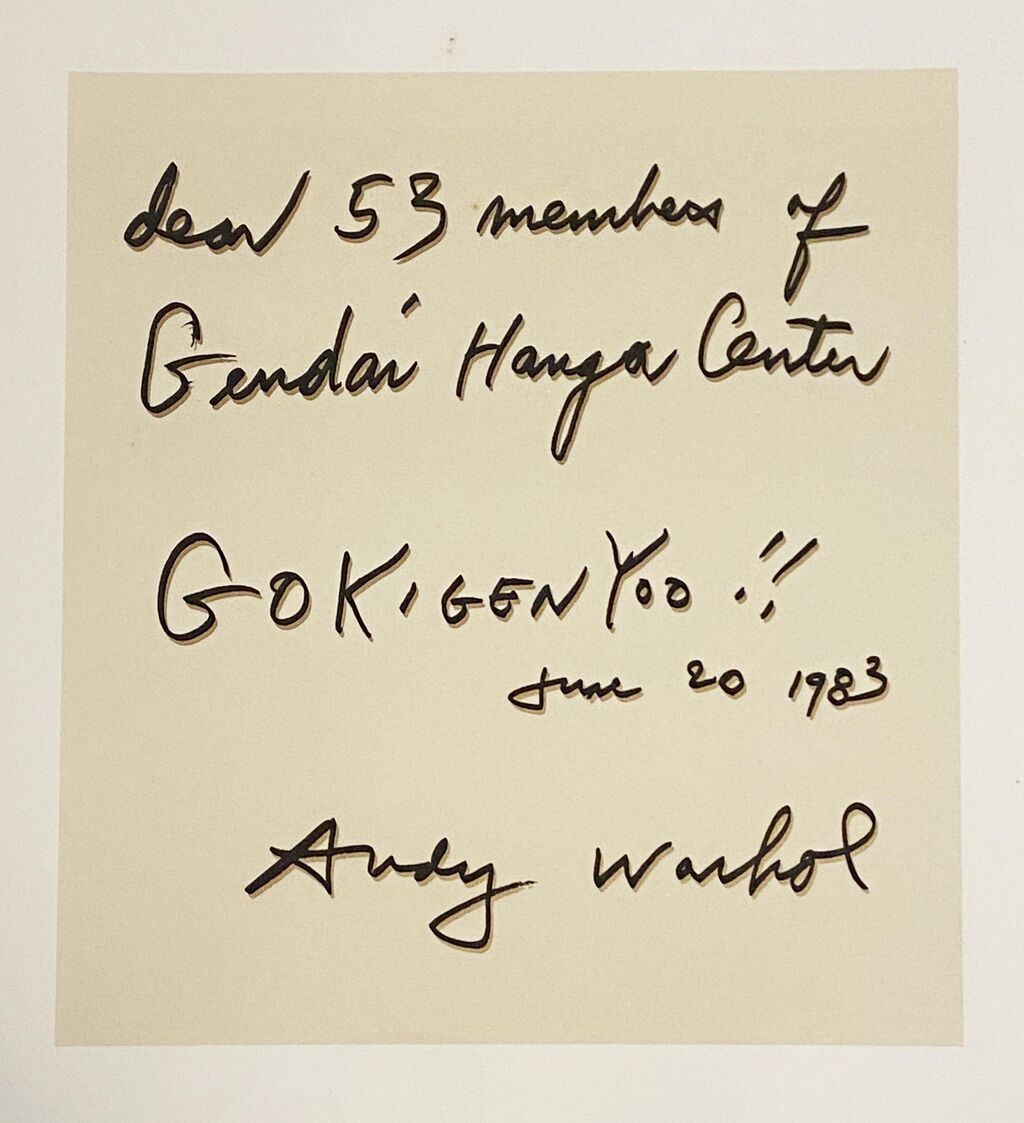 dear 53 members of
Gendai Hanga Center
GOKIGENYOO !!
June 20 1983
Andy Warhol